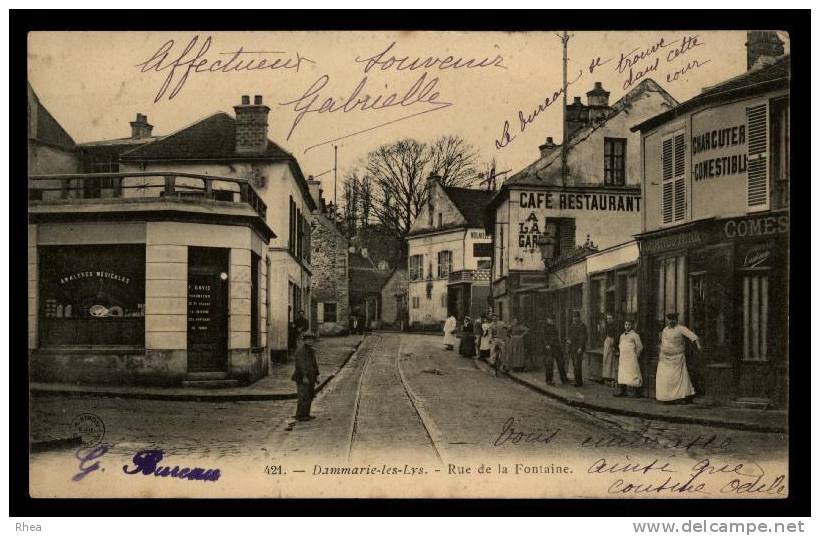 Affectueux souvenir
Gabrielle
Le bureau se trouve
dans cette
cour
CHARCUTER
COMESTIBL
CAFÉ RESTAURANT
A
LA
GARE
VOLAILLES
COMES
ANALYSES MEDICALES
P. DAVID
G. Bureau
421. — Dammarie-les-Lys. - Rue de la Fontaine.
Vous embrasse
ainsi que
cousine Odile
Rhea
www.delcampe.net